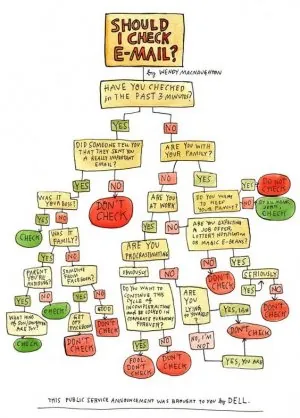 SHOULD
I CHECK
E-MAIL?
by WENDY MACNAUGHTON
HAVE YOU CHECKED
in THE PAST 3 MINUTES?
YES
NO
DID SOMEONE TELL YOU
THAT THEY SENT YOU
A REALLY IMPORTANT
EMAIL?
ARE YOU WITH
YOUR FAMILY?
YES
NO
NO
YES
DON'T
CHECK
WAS IT
YOUR BOSS?
ARE YOU
AT WORK
DO YOU
WANT
TO KEEP
YOUR FAMILY?
YES
DO NOT
CHECK
NO
CHECK
YES
NO
YES
NO
CHECK
WAS IT
FAMILY?
ARE YOU
PROCRASTINATING
ARE YOU EXPECTING
A JOB OFFER,
LOTTERY NOTIFICATION
OR MAGIC E-BEANS?
YES
NO
PARENT
YOU'RE
AVOIDING?
SOMEONE
FROM
FACEBOOK?
OBVIOUSLY
NO
NO
YES
DON'T
CHECK
SERIOUSLY
YES
NO
YES
NO
DO YOU WANT TO
CONTINUE THIS
CYCLE OF
FOREVER?
ARE
YOU
LYING TO
YOURSELF?
YES, I AM
NO
WHAT KIND
OF SON/DAUGHTER
ARE YOU?
CHECK
GET
OFF
FACEBOOK
GOOD
DON'T
CHECK
DON'T
CHECK
YES
NO
NO, I'M
NOT
CHECK
DON'T
CHECK
FOOL.
DON'T
CHECK
DON'T
CHECK
YES, YOU ARE
DON'T
CHECK
THIS PUBLIC SERVICE ANNOUNCEMENT WAS BROUGHT TO YOU by DELL.